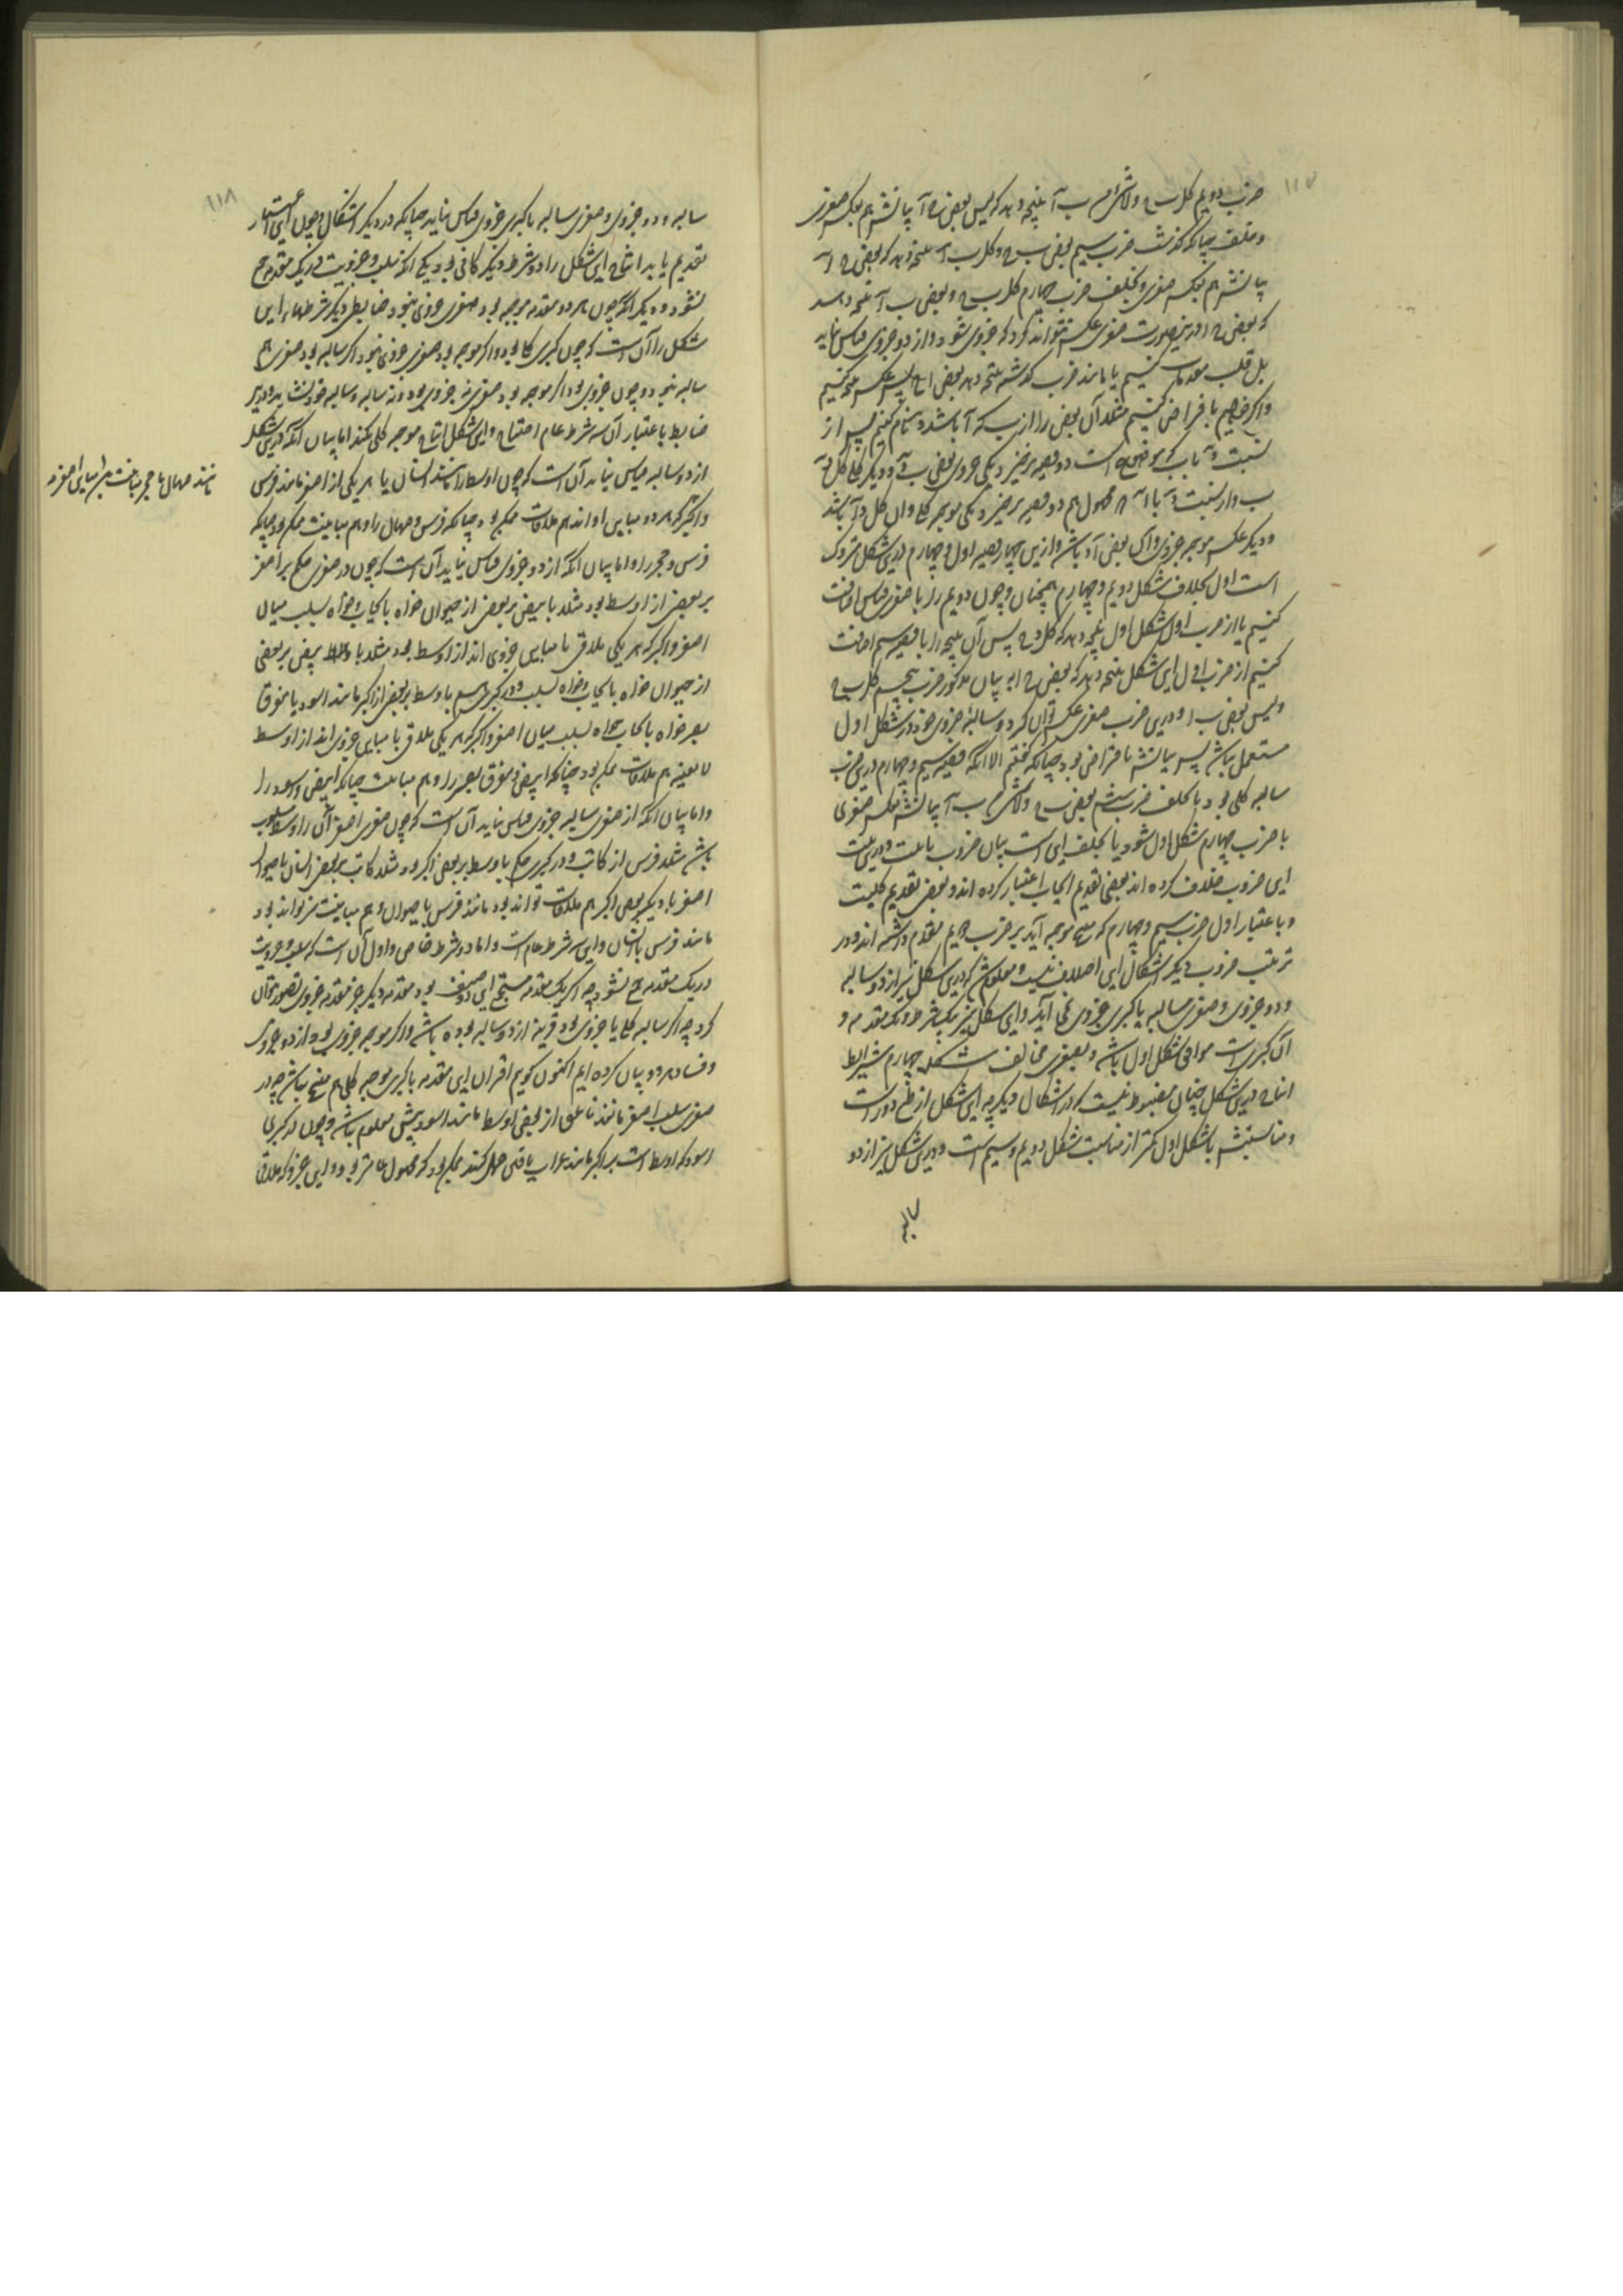 ۱۱۷
ضرب دویم کل ب ج ولا شئ من ب آ نتیجه دهد که لیس بعض ج آ بیانش هم بعکس صغری
و خلف چنانکه گذشت ضرب سیم بعض ب ج و کل ب آ نتیجه دهد که بعض ج آ
بیانش هم بعکس صغری و بخلف ضرب چهارم کل ب ج و بعض ب آ نتیجه دهد
که بعض ج ا و درین صورت صغری عکس نتواند کرد که جزوی شود و از دو جزوی قیاس نیاید
بل قلب مقدمات کنیم تا مانند ضرب گذشته نتیجه دهد بعض ا ج پس عکس نتیجه کنیم
و اگر خواهیم بافتراض کنیم مثلا آن بعض را از ب که آ باشد د نام کنیم پس از
نسبت د آ با ب که موضوع است دو قضیه برخیزد یکی جزوی بعض ب د و دیگر کلی کل د
ب و از نسبت د با آ که محمول هم دو قضیه برخیزد یکی موجبه کلی و آن کل د آ باشد
و دیگر عکسش موجبه جزوی و آن بعض آ د باشد و ازین چهار قضیه اول و چهارم درین شکل متروک
است اول بخلاف شکل دویم و چهارم همچنان و چون دویم را با صغری قیاس اضافت
کنیم تا از ضرب اول شکل اول نتیجه دهد که کل د ج پس آن نتیجه را با قضیه سیم اضافت
کنیم از ضرب اول این شکل نتیجه دهد که بعض ج ا بر بیان مذکور ضرب پنجم کل ب ج
و لیس بعض ب ا و درین ضرب صغری عکس توان کرد و سالبهٔ جزوی خود در شکل اول
مستعمل نباشد پس بیانش بافتراض بود چنانکه گفتیم الا آنکه قضیه سیم و چهارم درین ضرب
سالبه کلی بود یا بخلف ضرب ششم بعض ب ج ولا شئ من ب آ بیانش بعکس صغری
با ضرب چهارم شکل اول شود یا بخلف این است بیان ضروب
این ضروب خلاف کرده اند بعضی تقدیم ایجاب اعتبار کرده اند و بعضی تقدیم کلیت
و باعتبار اول ضرب سیم و چهارم که منتج موجبه آید بر ضرب دویم تقدم داشته اند و در
ترتیب ضروب دیگر اشکال این اختلاف نیست و معلوم شد که درین شکل نیز از دو سالبه
و دو جزوی و صغری سالبه با کبری جزوی نمی آید و این شکل نیز بیک شرط در یک مقدمه و
آن کبری است موافق شکل اول باشد و بصغری مخالف شکل چهارم شرایط
انتاج درین شکل چنان مضبوط نیست که در اشکال دیگر چه این شکل از طبع دور است
و مناسبتش با شکل اول کمتر از مناسبت شکل دویم و سیم است و درین شکل نیز از دو
سالبه
۱۱۸
سالبه و دو جزوی و صغری سالبه با کبری جزوی قیاس نیاید چنانکه در دیگر اشکال و چون این اعتبار
تقدیم یابد انتاج این شکل را دو شرط دیگر کافی بود یکی آنکه سلب و جزویت در یک مقدمه جمع
نشود و دیگر آنکه چون هر دو مقدمه موجبه بود صغری جزوی نبود و ضابطی دیگر شرطهاء این
شکل را آن است که چون کبری کلی بود و اگر موجبه بود صغری جزوی نبود و اگر سالبه بود صغری هم
سالبه نبود و چون جزوی بود اگر موجبه بود صغری نه جزوی بود و نه سالبه و سالبه خود نشاید و دیگر
ضابط باعتبار آن سه شرط عام احتیاج و این شکل انتاج موجبه کلی نکند اما بیان آنکه درین شکل
از دو سالبه قیاس نیاید آن است که چون اوسط را مانند انسان یا هر یکی از اصغر مانند فرس
و اکبر که هر دو مباین او اند هم ملاقات ممکن بود چنانکه فرس و صهال را و هم مباینت ممکن بود چنانکه
فرس و حجر را و اما بیان آنکه از دو جزوی قیاس نیاید آن است که چون در صغری حکم بر اصغر
بر بعضی از اوسط بود مثلا بابیض بر بعض از حیوان خواه بایجاب و خواه بسلب میان
اصغر و اکبر که هر یکی ملاقی یا مباین جزوی اند از اوسط بود مثلا با ابیض بر بعضی
از حیوان خواه بایجاب و خواه بسلب و در کبری حکم باوسط بر بعض از اکبر مانند اسود یا مفرق
بصر خواه بایجاب خواه بسلب میان اصغر و اکبر که هر یکی ملاقی یا مباین جزوی اند از اوسط
لا بعینه هم ملاقات ممکن بود چنانکه ابیض و مفرق بصر را و هم مباینت چنانکه ابیض و اسود را
و اما بیان آنکه از صغری سالبه جزوی قیاس نیاید آن است که چون صغری اصغر آن را اوسط مسلوب
باشد مثلا فرس از کاتب و در کبری حکم باوسط بر بعض اکبر بود مثلا کاتب بر بعض انسان یا حیوان
اصغر با دیگر بعض اکبر هم ملاقات تواند بود مانند فرس با حیوان و هم مباینت نیز تواند بود
مانند فرس با انسان و این سه شرط عام است و اما دو شرط خاص و اول آن است که سلب و جزویت
در یک مقدمه جمع نشود چه اگر یک مقدمه مستجمع این دو صنف بود مقدمه دیگر جز مقدمه جزوی تصور نتوان
کرد چه اگر سالبه کلی یا جزوی بود قرینه از دو سالبه بوده باشد و اگر موجبه جزوی بود از دو جزوی
و فساد هر دو بیان کرده ایم اکنون گویم اقتران این مقدمه با کبری موجبه کلی هم منتج نباشد چه در
صغری سلب اصغر مانند ناعق از بعض اوسط مانند اسود بیش معلوم نباشد و چون در کبری
اسود که اوسط است بر اکبر مانند غراب یا قیر حمل کنند ممکن بود که محمول عامتر بود و این جزو که ملاقی